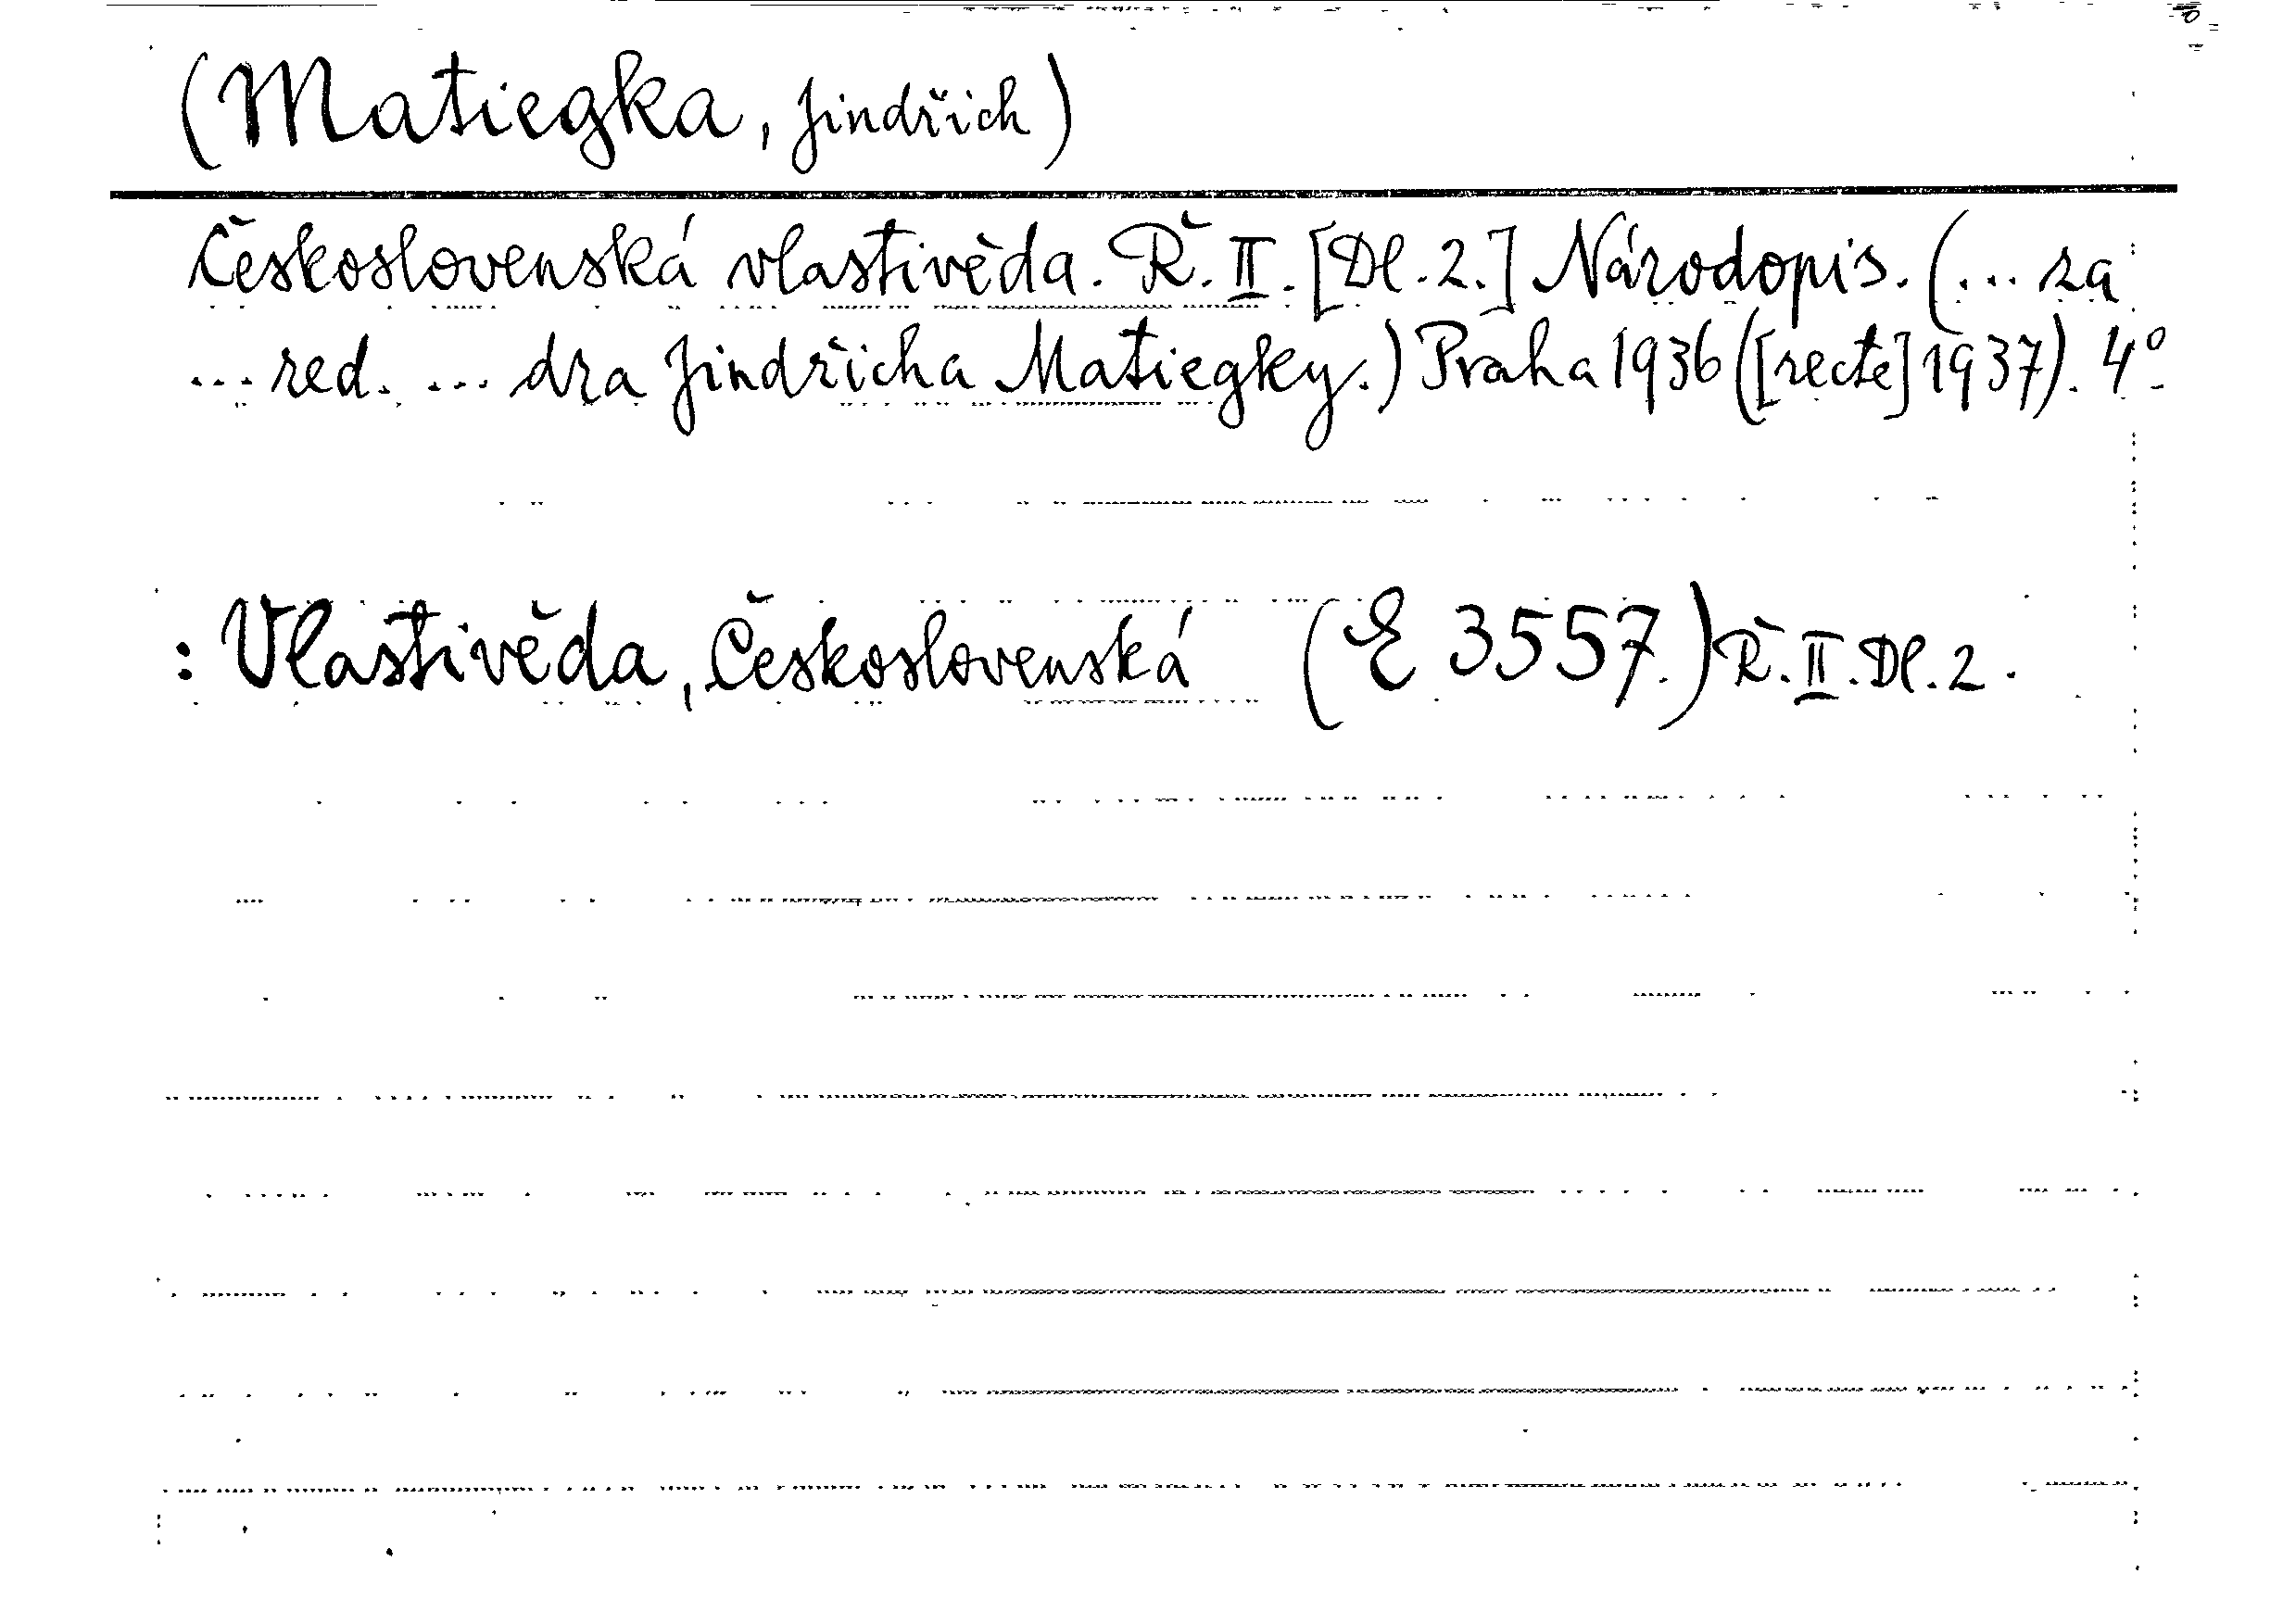 (Matiegka, Jindřich)
Československá vlastivěda. Ř. II. [Dl. 2.] Národopis. (... za
... red. ... dra Jindřicha Matiegky.) Praha 1936 ([recte] 1937). 4°
: Vlastivěda, Československá (E 3557.) Ř. II. Dl. 2.